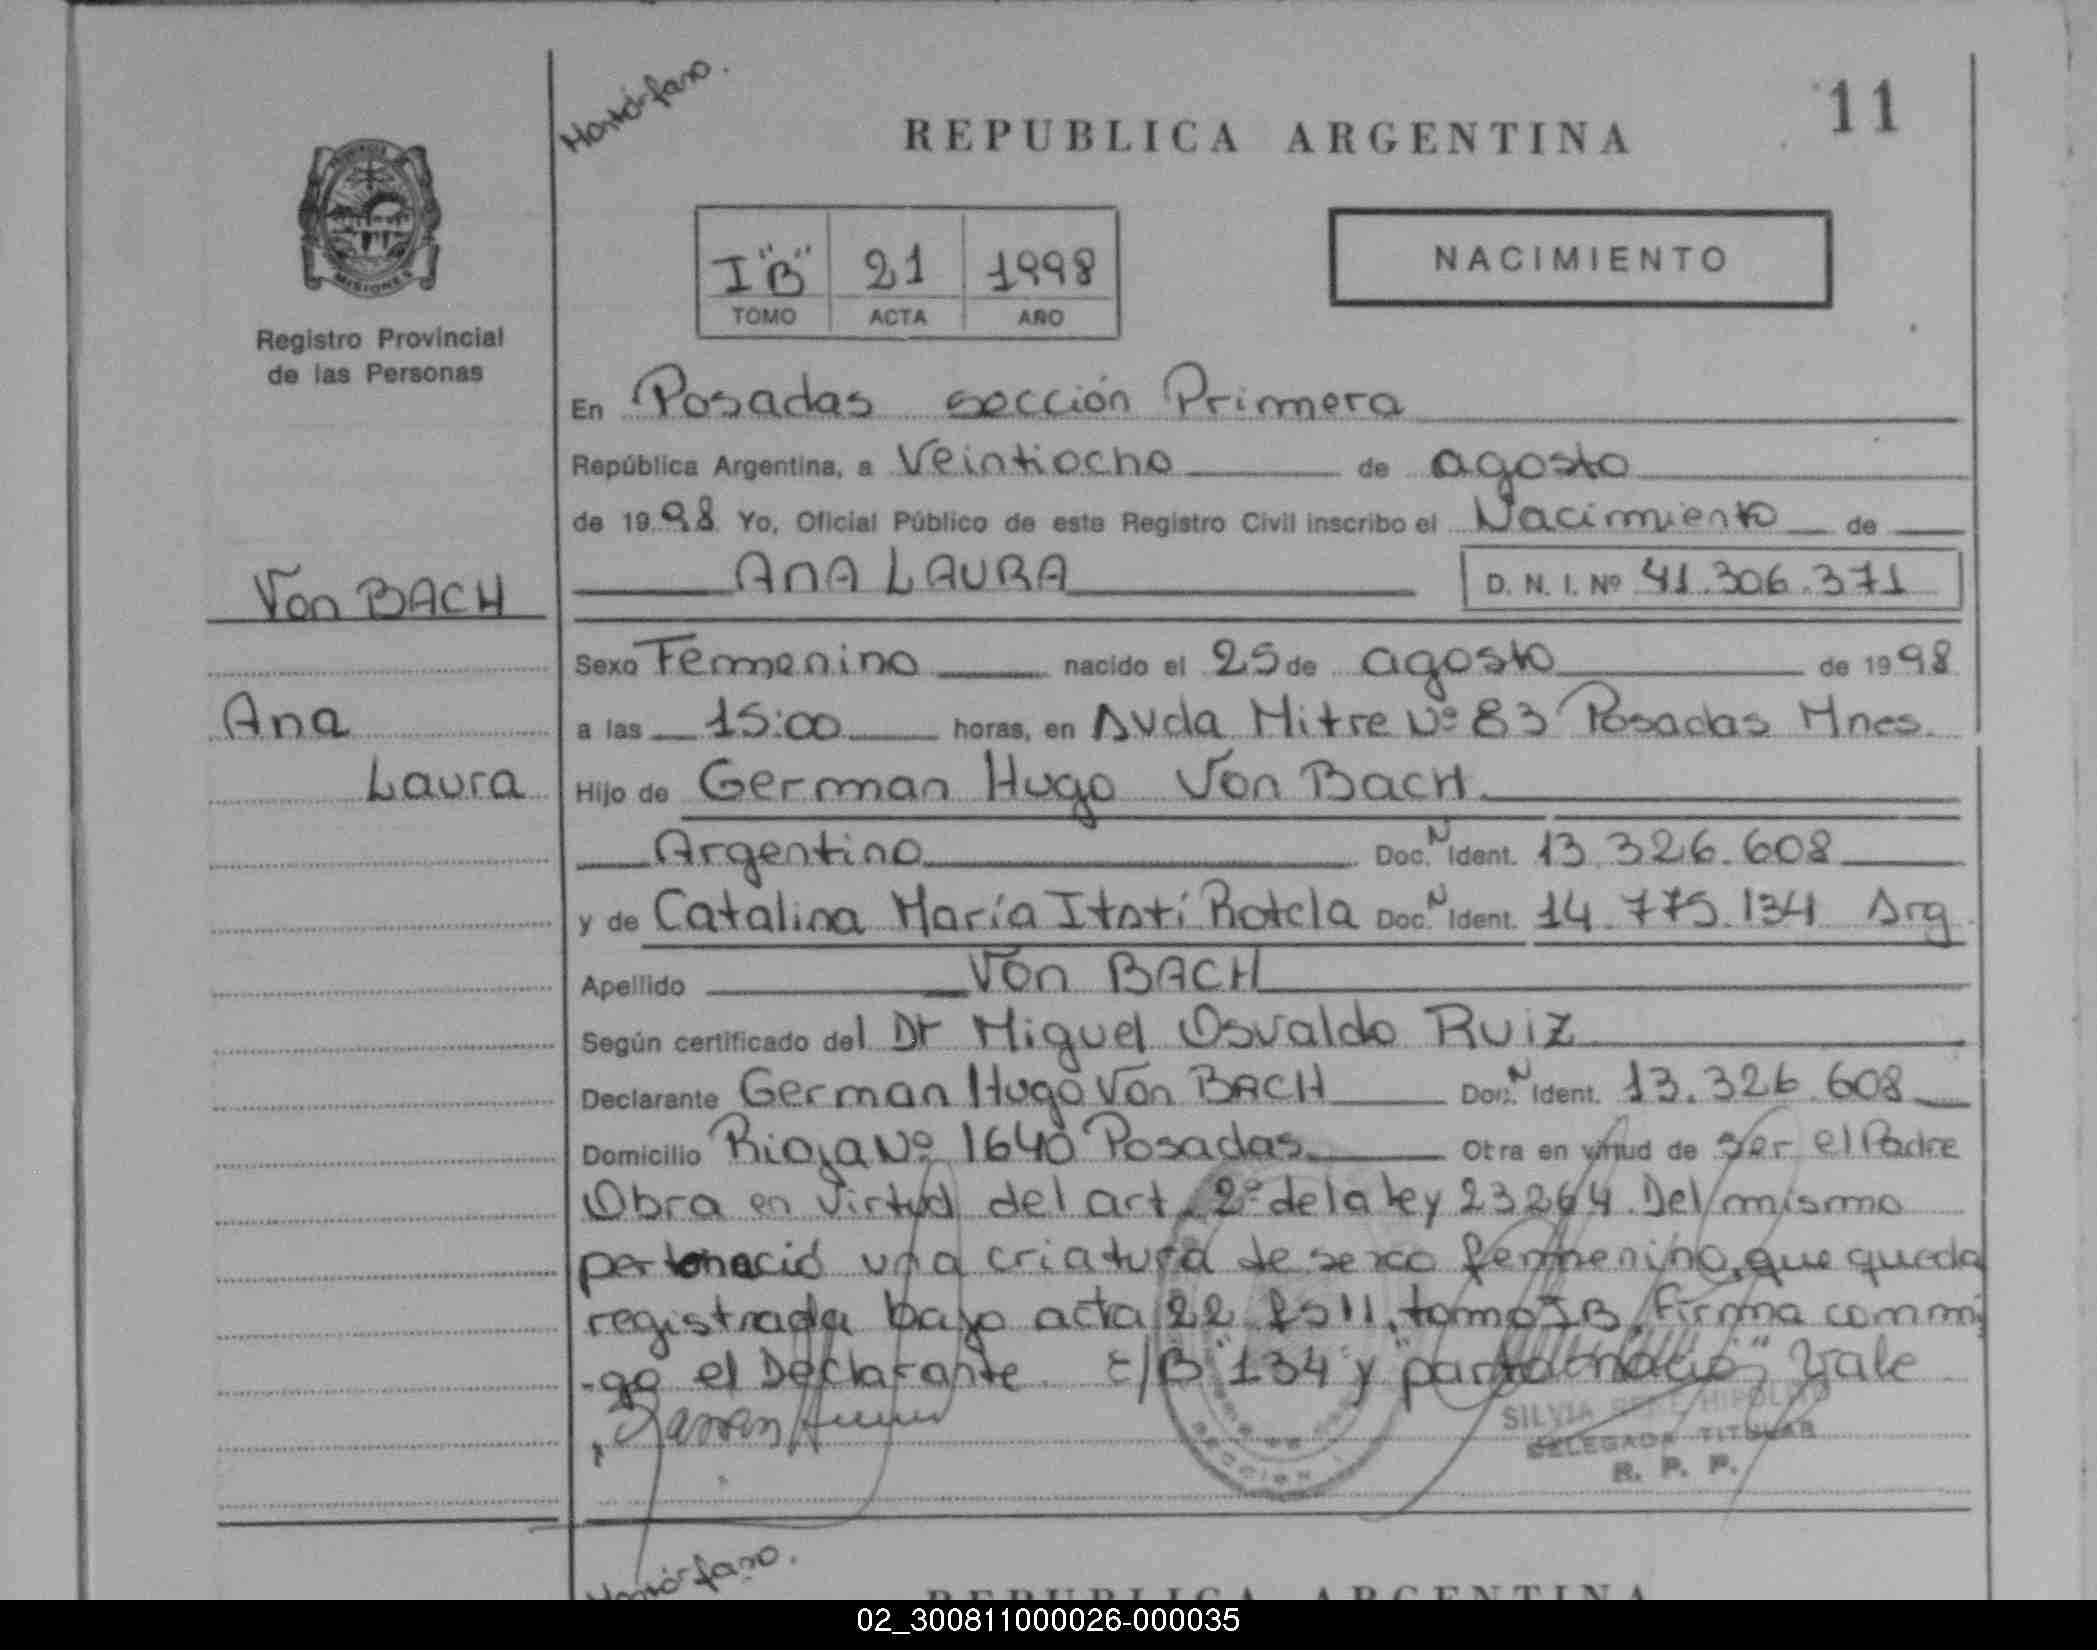 Monto-fano.
REPUBLICA ARGENTINA
11
MISIONES
Registro Provincial
de las Personas
I "B" 21 1998
TOMO ACTA AÑO
NACIMIENTO
En Posadas sección Primera
República Argentina, a Veintiocho de agosto
de 1998 Yo, Oficial Público de este Registro Civil inscribo el Nacimiento de
ANA LAURA
D. N. I. Nº 41.306.371
Von BACH
Ana
Laura
Sexo Femenino nacido el 25 de agosto de 1998
a las 15:00 horas, en Avda Mitre Nº 83 Posadas Mnes.
Hijo de German Hugo Von BacH
Argentino Doc. N Ident. 13.326.608
y de Catalina María Itatí Rotela Doc. N Ident. 14.775.134 Arg
Apellido Von BACH
Según certificado del Dr Miguel Osvaldo Ruiz
Declarante German Hugo Von BACH Doc. N Ident. 13.326.608
Domicilio Rioja Nº 1640 Posadas Otra en virtud de ser el Padre
Obra en virtud del art 2º de la ley 23264. Del mismo
pertenació una criatura de sexo femenino, que queda
registrada bajo acta 22 fº 11, tomo IB, Firma conmi
-go el Declarante. E/B "134" y Vale
SILVIA HIPOLITO
DELEGADA TITULAR
R. P. P.
SECCION
REPUBLICA ARGENTINA
02_300811000026-000035